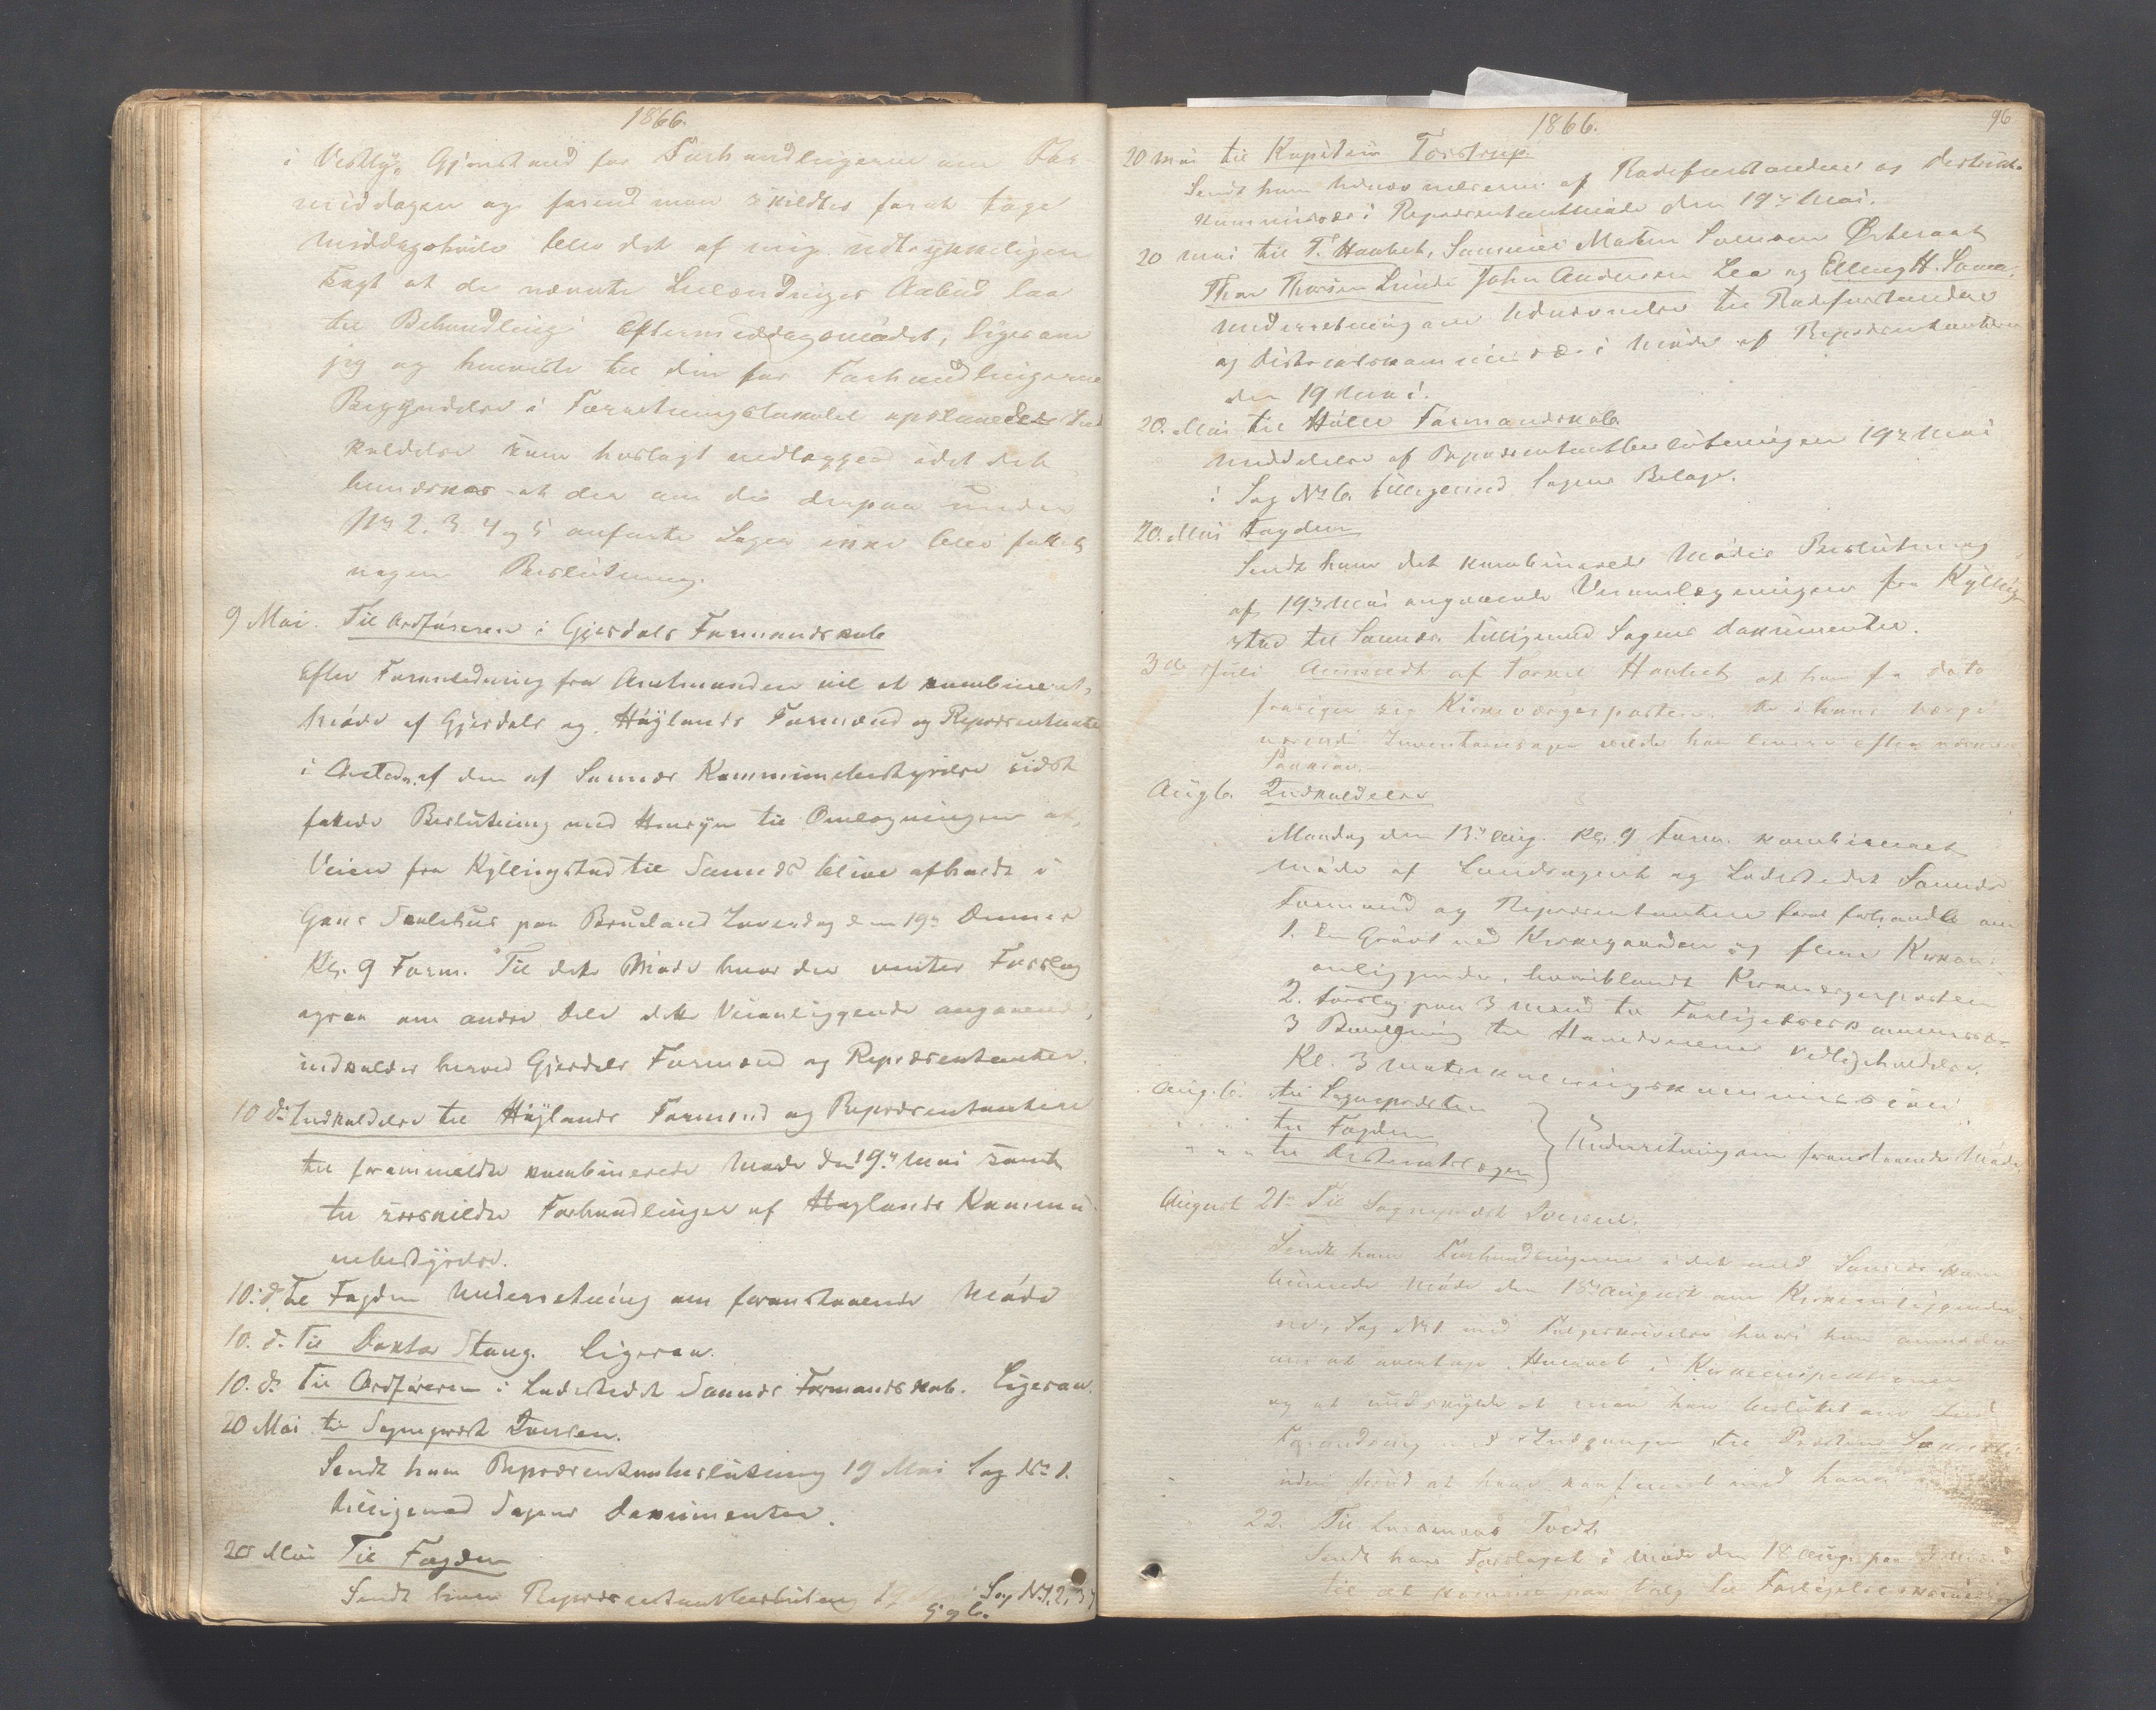 1866.
Gjenstand for Forhandlingerne om For-
middagen og forend man skildtes forat tage
Middagshvile blev det af mig udtrykkeligen
sagt at de nævnte Aabud laa
til Behandling i Eftermiddagsmødet, ligesom
jeg og henviste til den for Forhandlingerne
Begyndelse i Forretningslokalet opslaaede Ind
kaldelse
bemærkes at der om de derpaa under
No 2. 3. 4 og 5 anførte Sager ikke blev fattet
nogen Beslutning.
9 Mai. Til Ordføreren i Gjesdals Formandskab
Efter Foranledning fra Amtmanden vil et kombineret
Møde af Gjesdals og Høylands Formænd og Repræsentanter
i Anledn. af den af Sannæs Kommunebestyrelse sidst
fattede Beslutning med Hensyn til Omlægningen af
Veien fra Kyllingstad til Sannæs blive afholdt i
Gans Skolehus paa Brueland Løverdag den 19de Dennes
Kl. 9 Form. Til dette Møde hvor der ventes Forslag
ogsaa om andre dele dette Veianliggende angaaende,
indkaldes herved Gjesdals Formænd og Repræsentanter.
10 do Indkaldelse til Høylands Formænd og Repræsentantere
til foranmeldte kombinerede Møde den 19de Mai samt
til særskildte Forhandlinger af Høylands Kommu-
nebestyrelse.
10. d. Til Fogden Underretning om foranstaaende Møde
10. d. Til Doktor Stang. Ligesaa.
10. d. Til Ordføreren i Ladestedet Sannæs Formandskab. Ligesaa.
20 Mai til Sognepræst Iversen.
Sendt ham Repræsentantbeslutning 19 Mai Sag No 1.
tilligemed Sagens Dokumenter.
20 Mai Til Fogden
Sendt ham Repræsentantbeslutning Sag No 1, 2, 3, 4
5 og 6.
1866.
96
20 Mai til Kaptein Torstrup.
Sendt ham Udnævnelserne af Rodeforstandere og Distrikts
kommissær i Repræsentantmøde den 19de Mai.
20 Mai til T. Haabet, Sammel Maten Svensen Østeraat
Thor Thorsen Lunde John Andersen Lea og Elling H. Soma.
Underretning om Udnævnelse til Rodeforstandere
og Distriktskommissær i Møde af Repræsentanterne
den 19 Mai.
20. Mai til Hølle Formandskab.
Meddelelse af Repræsentantbeslutningen 19de Mai
i Sag No 6. tilligemed Sagens Bilage.
20. Mai Fogden
Sendt ham det kombinerede Mødes Beslutning
af 19de Mai angaaende Veiomlægningen fra Kylling
stad til Sannæs tilligemed Sagens Dokumenter.
3de Juli Anmeldt af Torkel Haabet at han fra dato
frasiger sig Kirkeværgeposten. De i hans Værge
værende Inventariesager vilde han levere
Aug 6. Indkaldelse
Mandag den 13de Aug. Kl. 9 Form. kombineret
Møde af Landsognet og Ladestedet Sannæs
Formænd og Repræsentantere forat forhandle om
1. En Grøvt ved Kirkegaarden og flere Kirkean-
anliggender, hvoriblandt Kirkeværgeposten
2. Forslag paa 3 Mænd til Forligelseskommissær
3 Bevilgning til Havnevæsenets Vedligeholdelse.
Kl. 3 Matrikuleringskommission
Aug. 6. til Sognepræsten
" " til Fogden
" " " til Distriktslægen
Underretning om foranstaaende Møde
August 21de Til Sognepræst Iversen.
Sendt ham Forhandlingerne i det med Sannæs kom
binerede Møde den 13de August om Kirkeanliggender
ne, Sag No 1 med Følgeskrivelse hvori han anmodes
om at
og at undskylde at man har besluttet
Forandring med Indgangen til Præstens
uden først at have konfereret med ham
22. Til Lensmand Tvedt
Sendt ham Forslaget i Møde den 18 Aug. paa 3 Mænd
til at komme paa Valg til Forligelseskommissær